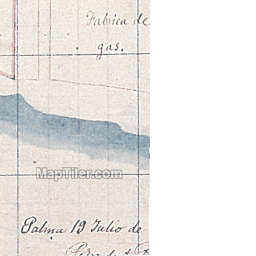 Fabrica de
gas.
MapTiler.com
Palma 19 Julio de